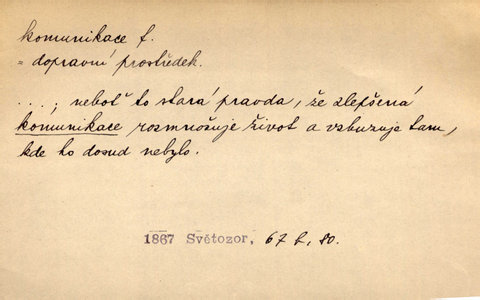 komunikace f.
= dopravní prostředek.
....; neboť to stará pravda, že zlepšená
komunikace rozmnožuje život a vzbuzuje tam,
kde ho dosud nebylo.
1867 Světozor, 67 b, 80.